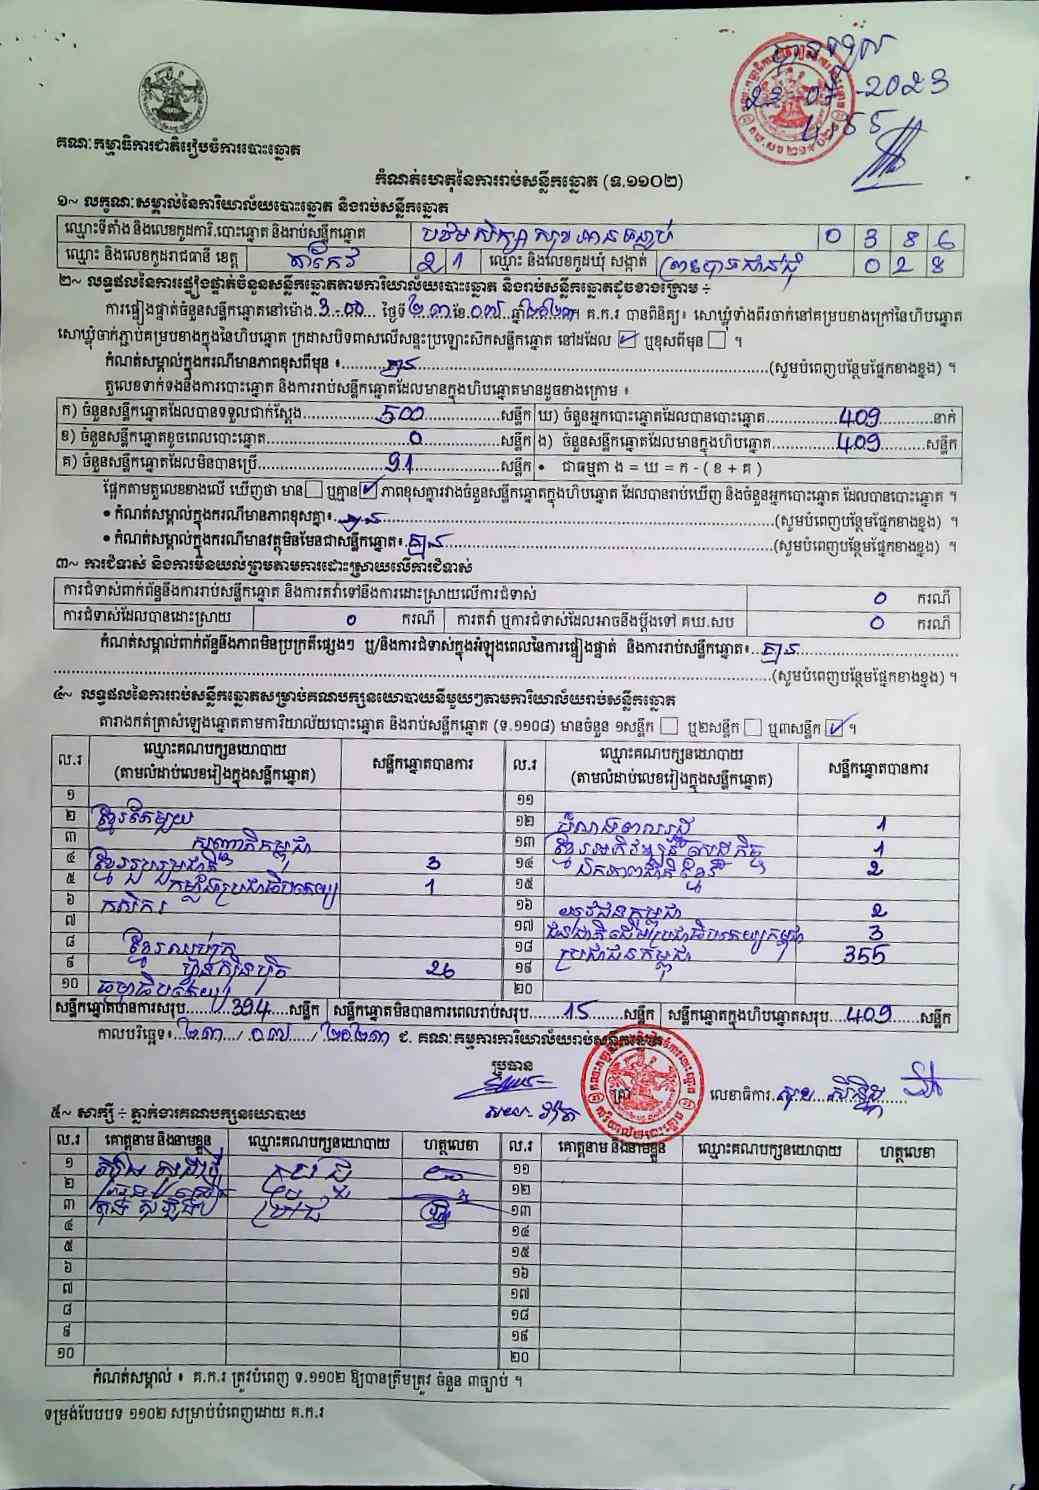 បានទទួល
23-07-2023
4:55
គណៈកម្មាធិការជាតិរៀបចំការបោះឆ្នោត
កំណត់ហេតុនៃការរាប់សន្លឹកឆ្នោត (ទ.១១០២)
១~ លក្ខណៈសម្គាល់នៃការិយាល័យបោះឆ្នោត និងរាប់សន្លឹកឆ្នោត
ឈ្មោះទីតាំង និងលេខកូដការិ.បោះឆ្នោត និងរាប់សន្លឹកឆ្នោត បឋមសិក្សា សុខអានទន្លាប់ 0 3 8 6
ឈ្មោះ និងលេខកូដរាជធានី ខេត្ត តាកែវ 2 1 ឈ្មោះ និងលេខកូដឃុំ សង្កាត់ ព្រះបាទជាន់ជុំ 0 2 8
២~ លទ្ធផលនៃការផ្ទៀងផ្ទាត់ចំនួនសន្លឹកឆ្នោតតាមការិយាល័យបោះឆ្នោត និងរាប់សន្លឹកឆ្នោតដូចខាងក្រោម ÷
ការផ្ទៀងផ្ទាត់ចំនួនសន្លឹកឆ្នោតនៅម៉ោង 3-00 ថ្ងៃទី ២៣ ខែ ០៧ ឆ្នាំ ២០២៣។ គ.ក.រ បានពិនិត្យ៖ សោឃ្លុំទាំងពីរចាក់នៅគម្របខាងក្រៅនៃហិបឆ្នោត
សោឃ្លុំចាក់ភ្ជាប់គម្របខាងក្នុងនៃហិបឆ្នោត ក្រដាសបិទពាសលើសន្ទះប្រឡោះសិកសន្លឹកឆ្នោត នៅដដែល ☑ ឬខុសពីមុន ☐ ។
កំណត់សម្គាល់ក្នុងករណីមានភាពខុសពីមុន ៖ គ្មាន (សូមបំពេញបន្ថែមផ្នែកខាងខ្នង) ។
តួលេខទាក់ទងនឹងការបោះឆ្នោត និងការរាប់សន្លឹកឆ្នោតដែលមានក្នុងហិបឆ្នោតមានដូចខាងក្រោម ៖
ក) ចំនួនសន្លឹកឆ្នោតដែលបានទទួលជាក់ស្តែង 500 សន្លឹក ឃ) ចំនួនអ្នកបោះឆ្នោតដែលបានបោះឆ្នោត 409 នាក់
ខ) ចំនួនសន្លឹកឆ្នោតខូចពេលបោះឆ្នោត 0 សន្លឹក ង) ចំនួនសន្លឹកឆ្នោតដែលមានក្នុងហិបឆ្នោត 409 សន្លឹក
គ) ចំនួនសន្លឹកឆ្នោតដែលមិនបានប្រើ 91 សន្លឹក • ជាធម្មតា ង = ឃ = ក - ( ខ + គ )
ផ្អែកតាមតួលេខខាងលើ ឃើញថា មាន ☐ ឬគ្មាន ☑ ភាពខុសគ្នារវាងចំនួនសន្លឹកឆ្នោតក្នុងហិបឆ្នោត ដែលបានរាប់ឃើញ និងចំនួនអ្នកបោះឆ្នោត ដែលបានបោះឆ្នោត ។
• កំណត់សម្គាល់ក្នុងករណីមានភាពខុសគ្នា៖ គ្មាន (សូមបំពេញបន្ថែមផ្នែកខាងខ្នង) ។
• កំណត់សម្គាល់ក្នុងករណីមានវត្ថុមិនមែនជាសន្លឹកឆ្នោត៖ គ្មាន (សូមបំពេញបន្ថែមផ្នែកខាងខ្នង) ។
៣~ ការជំទាស់ និងការមិនយល់ព្រមតាមការដោះស្រាយលើការជំទាស់
ការជំទាស់ពាក់ព័ន្ធនឹងការរាប់សន្លឹកឆ្នោត និងការតវ៉ាទៅនឹងការដោះស្រាយលើការជំទាស់ 0 ករណី
ការជំទាស់ដែលបានដោះស្រាយ 0 ករណី ការតវ៉ា ឬការជំទាស់ដែលអាចនឹងប្តឹងទៅ គឃ.សប 0 ករណី
កំណត់សម្គាល់ពាក់ព័ន្ធនឹងភាពមិនប្រក្រតីផ្សេងៗ ឬ/និងការជំទាស់ក្នុងអំឡុងពេលនៃការផ្ទៀងផ្ទាត់ និងការរាប់សន្លឹកឆ្នោត៖ គ្មាន
(សូមបំពេញបន្ថែមផ្នែកខាងខ្នង) ។
៤~ លទ្ធផលនៃការរាប់សន្លឹកឆ្នោតសម្រាប់គណបក្សនយោបាយនីមួយៗតាមការិយាល័យរាប់សន្លឹកឆ្នោត
តារាងកត់ត្រាសំឡេងឆ្នោតតាមការិយាល័យបោះឆ្នោត និងរាប់សន្លឹកឆ្នោត (ទ.១១០៨) មានចំនួន ១សន្លឹក ☐ ឬ២សន្លឹក ☐ ឬ៣សន្លឹក ☑ ។
ល.រ ឈ្មោះគណបក្សនយោបាយ (តាមលំដាប់លេខរៀងក្នុងសន្លឹកឆ្នោត) សន្លឹកឆ្នោតបានការ ល.រ ឈ្មោះគណបក្សនយោបាយ (តាមលំដាប់លេខរៀងក្នុងសន្លឹកឆ្នោត) សន្លឹកឆ្នោតបានការ
១ ១១
២ ខ្មែរតែមួយ ១២ 1
៣ សញ្ជាតិកម្ពុជា ១៣ ខ្មែរអភិវឌ្ឍន៍សេដ្ឋកិច្ច 1
៤ ខ្មែររួបរួមជាតិ 3 ១៤ ឯកភាពជាតិខ្មែរ 2
៥ កម្លាំងប្រជាធិបតេយ្យ 1 ១៥
៦ កសិករ ១៦ យុវជនកម្ពុជា 2
៧ ១៧ ជនជាតិដើមប្រជាធិបតេយ្យកម្ពុជា 3
៨ ខ្មែរឈប់ក្រ ១៨ ប្រជាជនកម្ពុជា 355
៩ ហ៊្វុនស៊ិនប៉ិច 26 ១៩
១០ ធម្មាធិបតេយ្យ ២០
សន្លឹកឆ្នោតបានការសរុប 394 សន្លឹក សន្លឹកឆ្នោតមិនបានការពេលរាប់សរុប 15 សន្លឹក សន្លឹកឆ្នោតក្នុងហិបឆ្នោតសរុប 409 សន្លឹក
កាលបរិច្ឆេទ៖ ២៣/០៧/២០២៣ ជ. គណៈកម្មការការិយាល័យរាប់សន្លឹកឆ្នោត
ប្រធាន
លេខាធិការ
៥~ សាក្សី ÷ ភ្នាក់ងារគណបក្សនយោបាយ
ល.រ គោត្តនាម និងនាមខ្លួន ឈ្មោះគណបក្សនយោបាយ ហត្ថលេខា ល.រ គោត្តនាម និងនាមខ្លួន ឈ្មោះគណបក្សនយោបាយ ហត្ថលេខា
១ ១១
២ ១២
៣ ១៣
៤ ១៤
៥ ១៥
៦ ១៦
៧ ១៧
៨ ១៨
៩ ១៩
១០ ២០
កំណត់សម្គាល់ ៖ គ.ក.រ ត្រូវបំពេញ ទ.១១០២ ឱ្យបានត្រឹមត្រូវ ចំនួន ៣ច្បាប់ ។
ទម្រង់បែបបទ ១១០២ សម្រាប់បំពេញដោយ គ.ក.រ